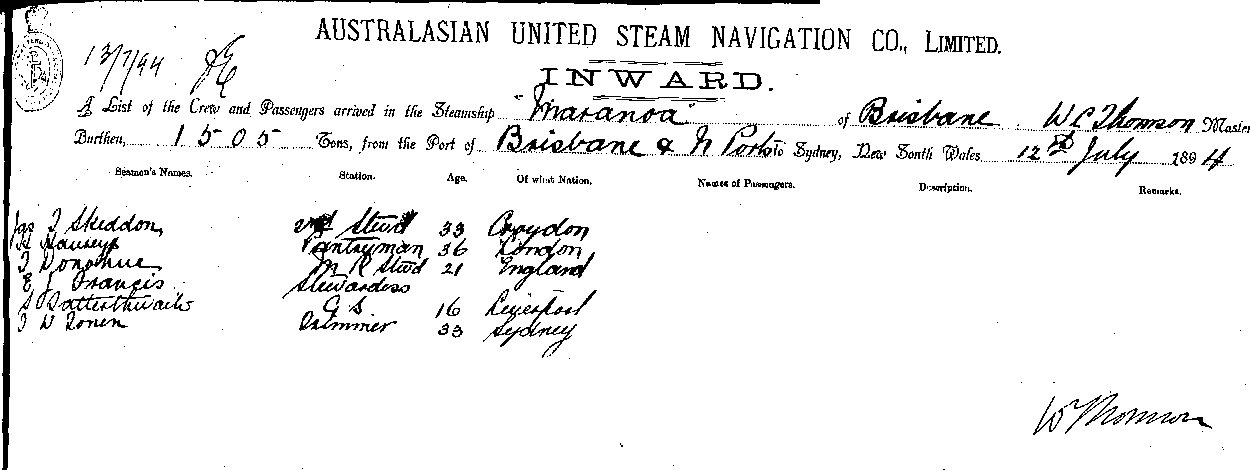 AUSTRALASIAN UNITED STEAM NAVIGATION CO., LIMITED.
13/7/94
INWARD.
A List of the Crew and Passengers arrived in the Steamship "Maranoa" of Brisbane W C Thomson Master
Burthen, 1505 Tons, from the Port of Brisbane & N Ports to Sydney, New South Wales 12th July 1894
Seamen's Names. Station. Age. Of what Nation. Names of Passengers. Description. Remarks.
Jas T Skeddon Stewd 33 Croydon
Pantryman 36 London
T Donohue M R Stewd 21 England
E J Francis Stewardess
S Satterthwaite G S 16 Liverpool
T W Trimmer 33 Sydney
W Thomson